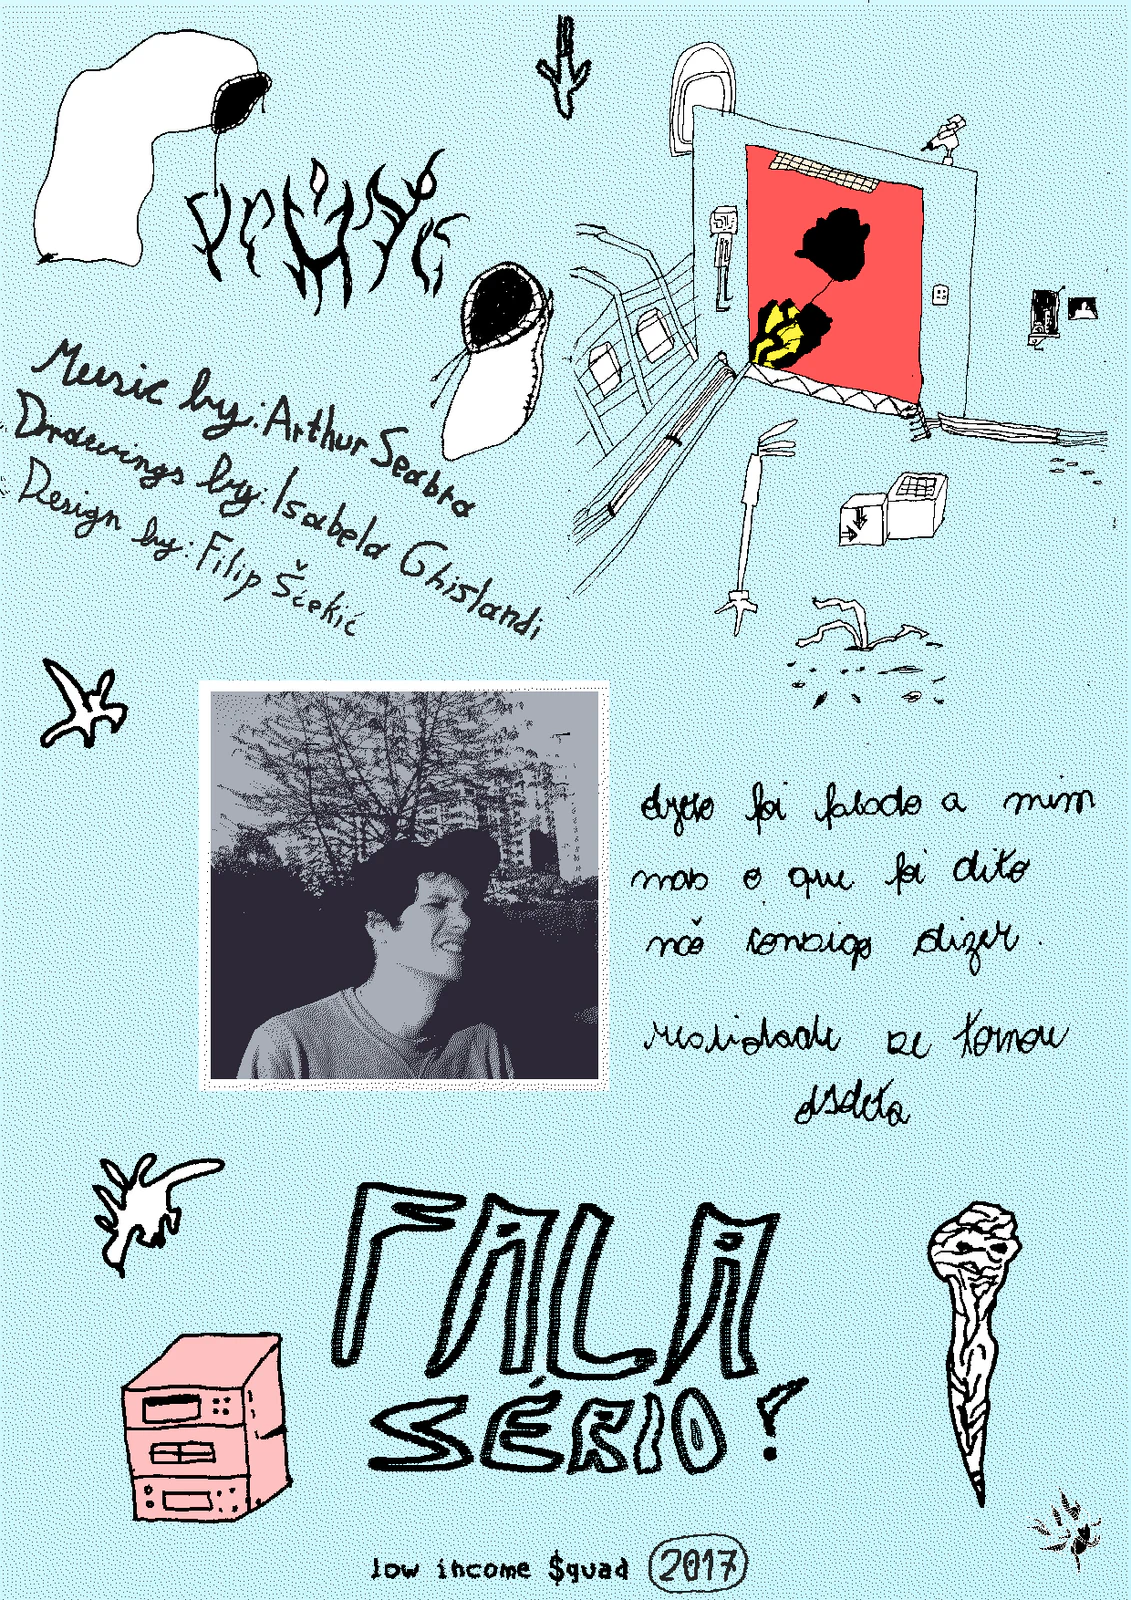 Music by: Arthur Seabra
Drawings by: Isabela Ghislandi
Design by: Filip Šćekić
foi falado a mim
mas o que foi dito
não consigo dizer.
realidade se tornou
FALA
SÉRIO!
low income $quad 2017